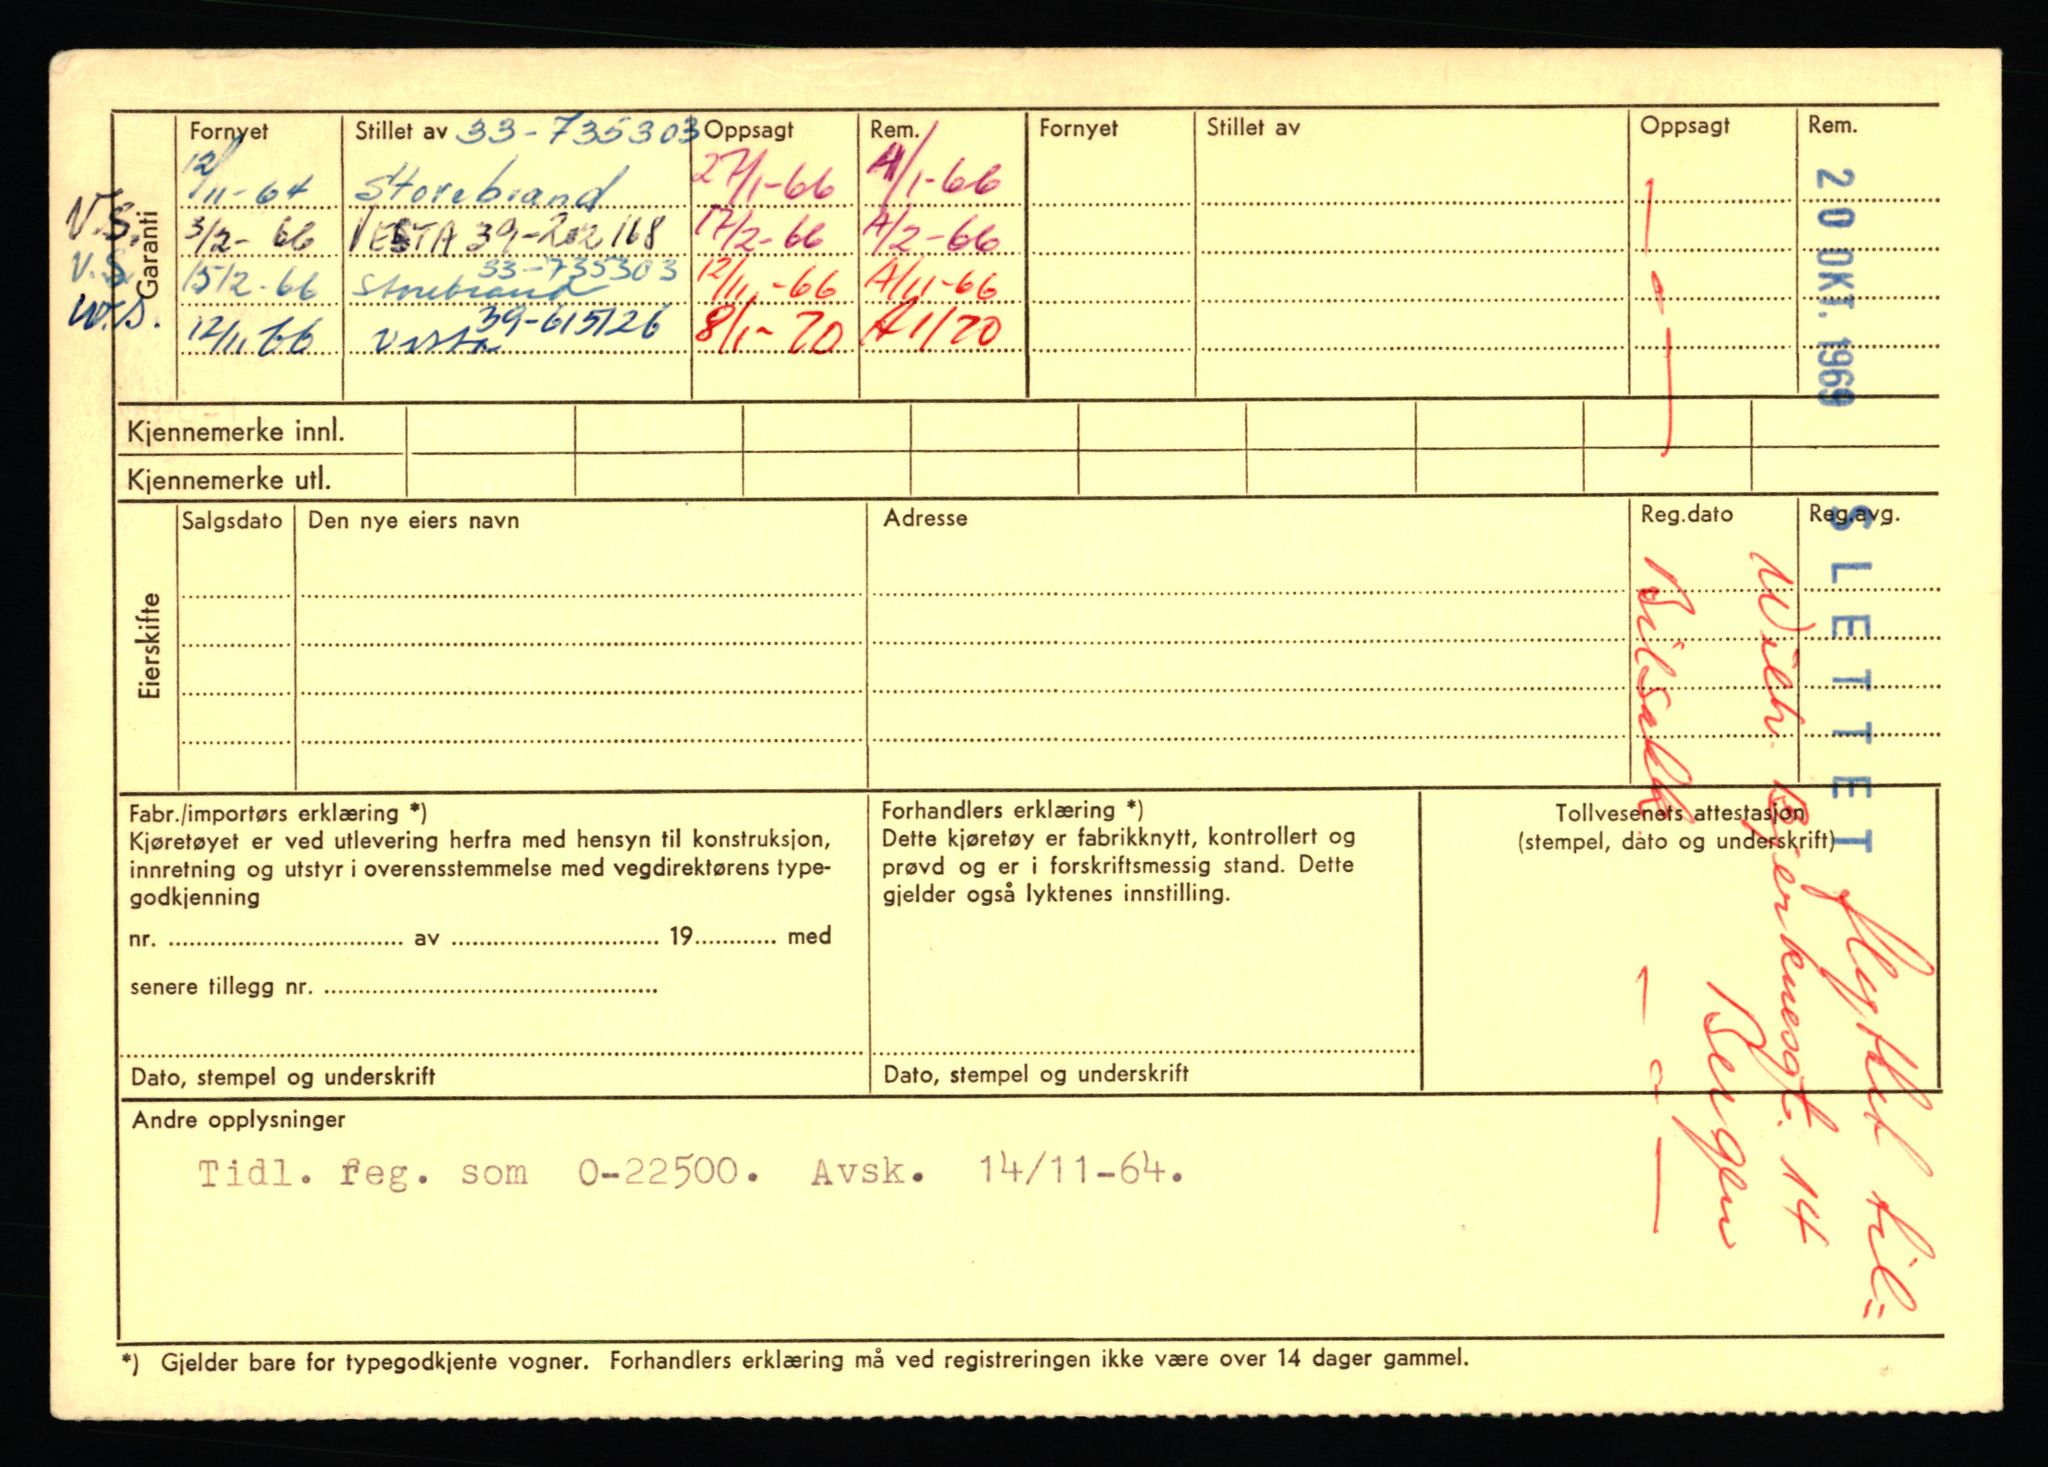 Garanti
Fornyet Stillet av 33-735303 Oppsagt Rem. Fornyet Stillet av Oppsagt Rem.
12/11-64 Storebrand 27/1-66 A/1-66
V.S. 3/2-66 VESTA 39-202168 17/2-66 A/2-66
V.S. 15/2-66 Storebrand 33-735303 12/11-66 A/11-66
W.S. 12/11 66 Vesta 39-615126 8/1-70 A 1/70
Kjennemerke innl.
Kjennemerke utl.
Eierskifte
Salgsdato Den nye eiers navn Adresse Reg.dato Reg.avg.
Fabr./importørs erklæring *)
Kjøretøyet er ved utlevering herfra med hensyn til konstruksjon,
innretning og utstyr i overensstemmelse med vegdirektørens type-
godkjenning
nr. av 19 med
senere tillegg nr.
Dato, stempel og underskrift
Forhandlers erklæring *)
Dette kjøretøy er fabrikknytt, kontrollert og
prøvd og er i forskriftsmessig stand. Dette
gjelder også lyktenes innstilling.
Dato, stempel og underskrift
Tollvesenets attestasjon
(stempel, dato og underskrift)
Andre opplysninger
Tidl. reg. som O-22500. Avsk. 14/11-64.
*) Gjelder bare for typegodkjente vogner. Forhandlers erklæring må ved registreringen ikke være over 14 dager gammel.
20 OKT. 1969 SLETTET
flyttet til:
Wilh. Bjerknesgt. 14
Bergen
Bilsakk.